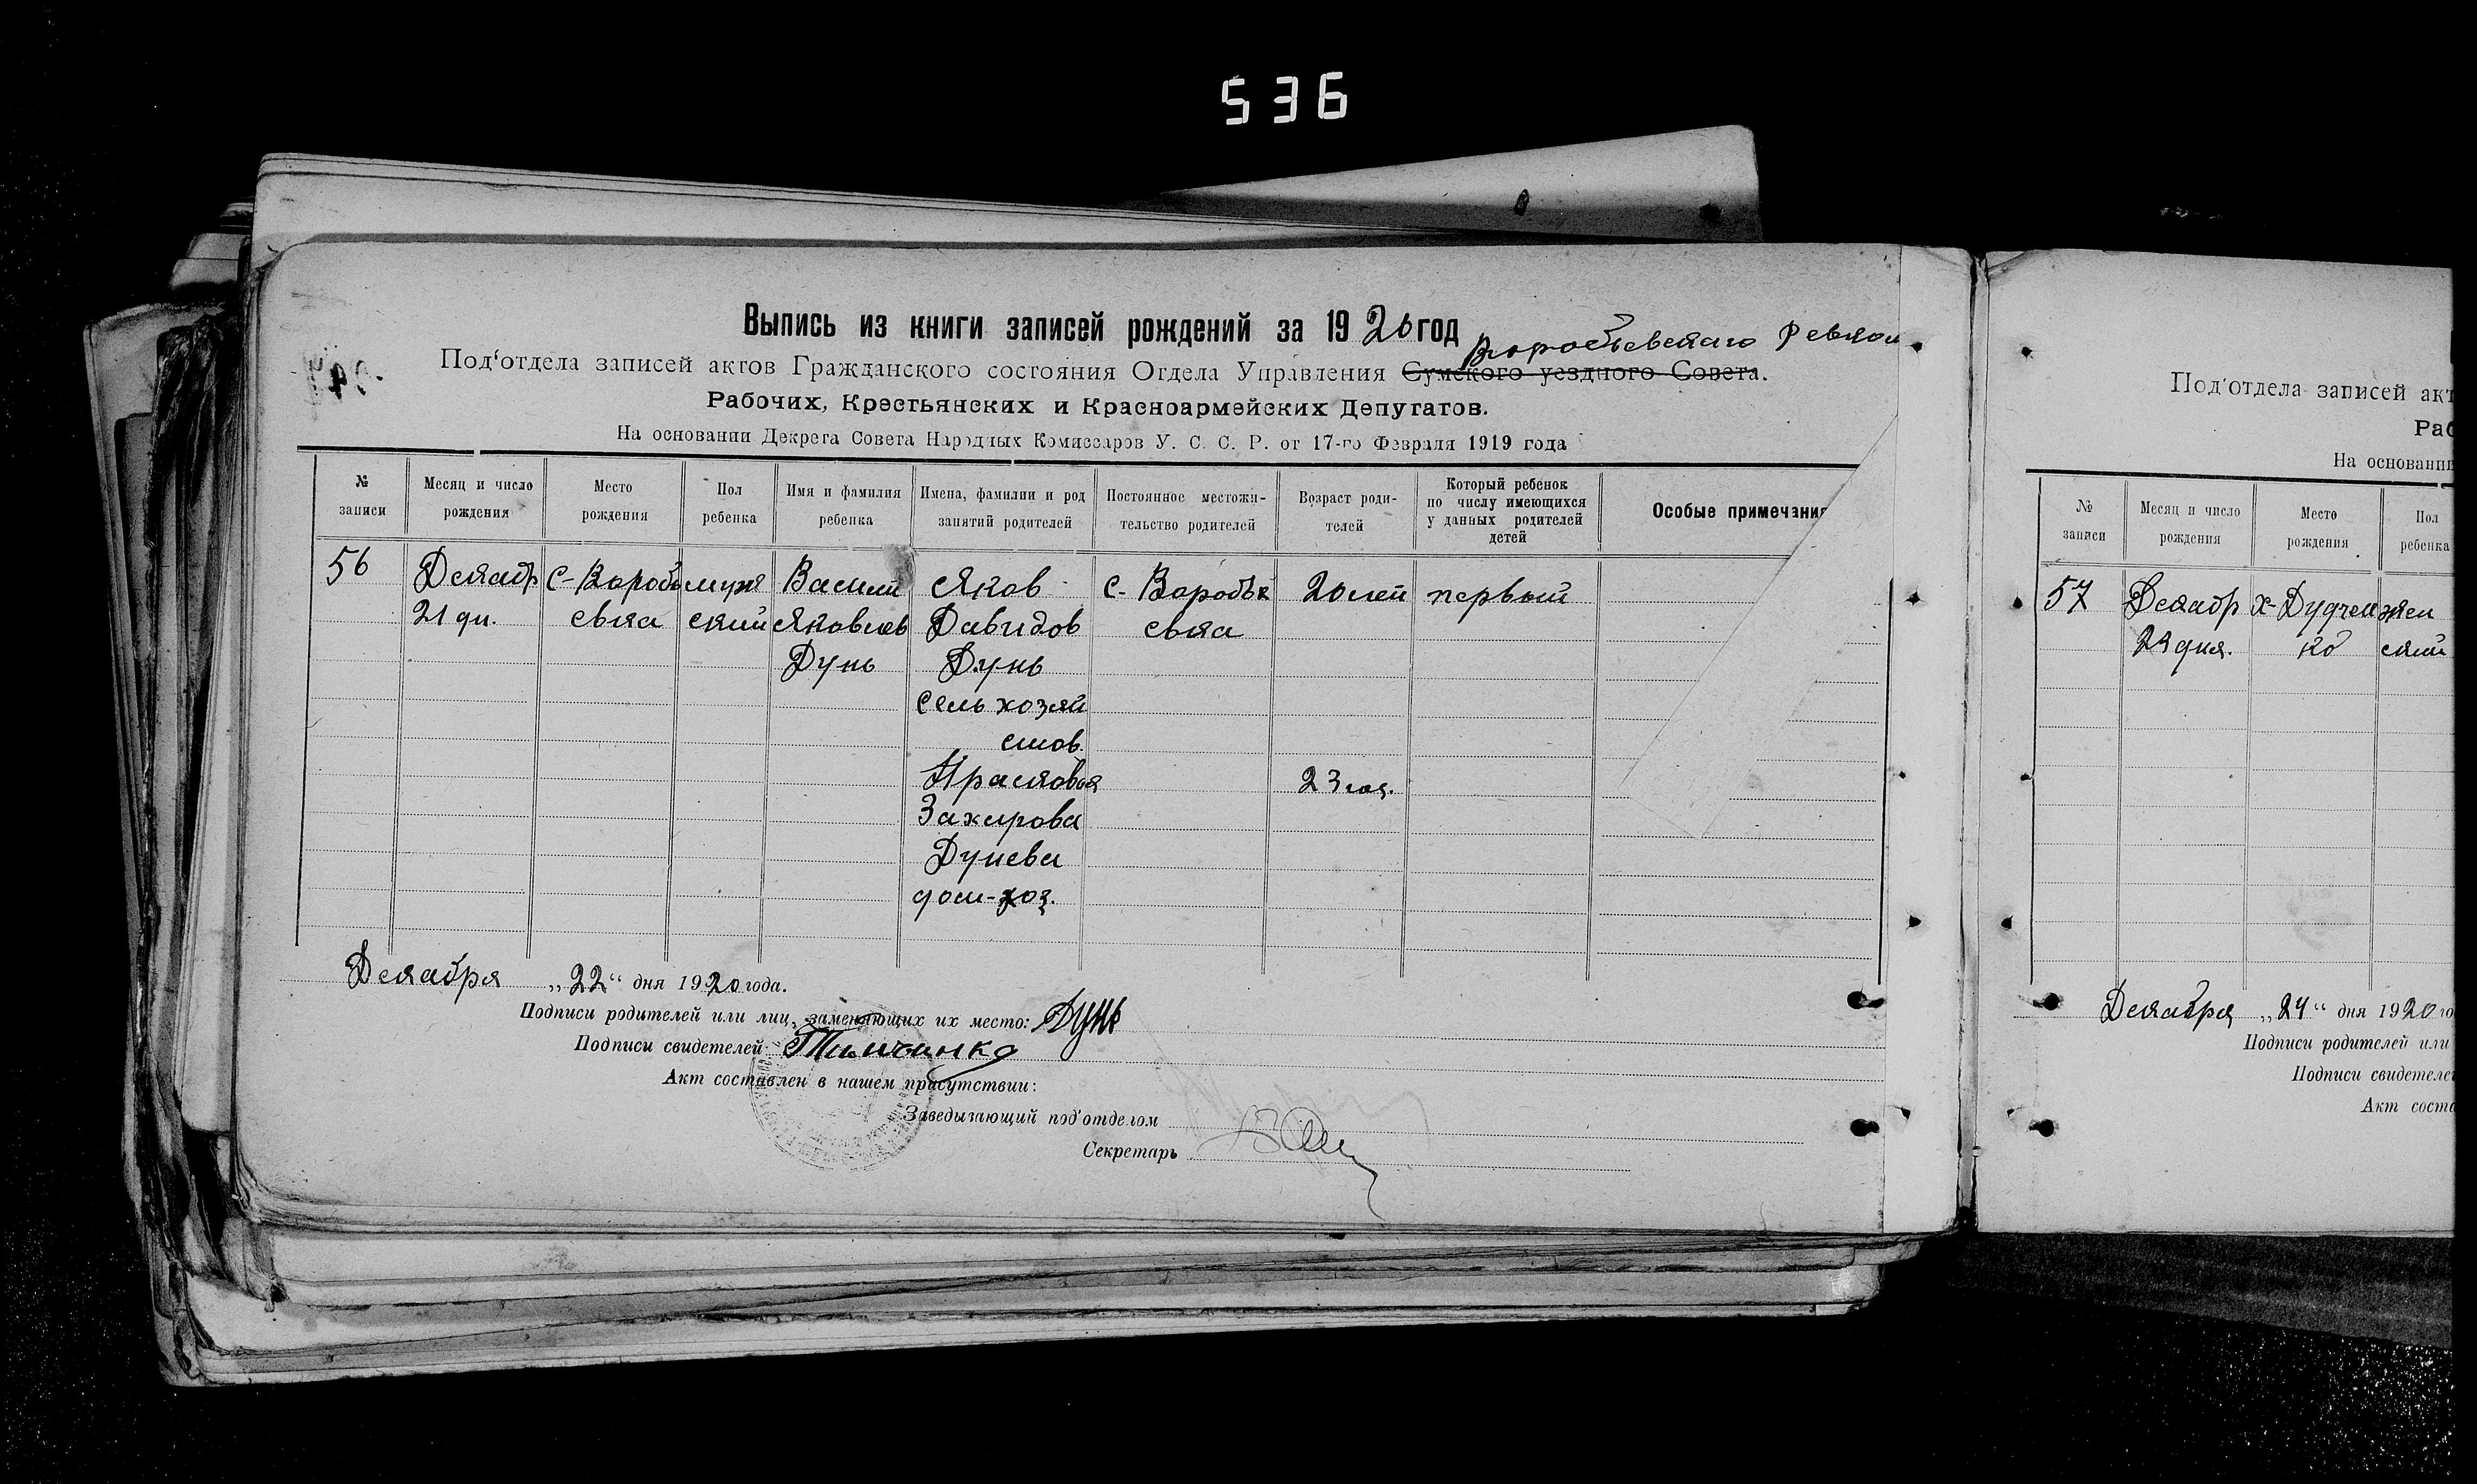 536
Выпись из книги записей рождений за 1920 год
Воробьевского Ревком
Под'отдела записей актов Гражданского состояния Отдела Управления Сумского уездного Совета.
Рабочих, Крестьянских и Красноармейских Депутатов.
На основании Декрета Совета Народных Комиссаров У. С. С. Р. от 17-го Февраля 1919 года
№ записи
Месяц и число рождения
Место рождения
Пол ребенка
Имя и фамилия ребенка
Имена, фамилии и род занятий родителей
Постоянное местожи-тельство родителей
Возраст роди-телей
Который ребенок по числу имеющихся у данных родителей детей
Особые примечания
56 Декабр С-Воробь муж Васили Яков С-Воробь 20 лет первый
21 дн. евка ский Яковлев Давидов евка
Дунь Дунь
сельхозяй
ств.
Прасковья 23 год.
Захарова
Дунева
дом-хоз.
Декабря „22“ дня 1920 года.
Подписи родителей или лиц, заменяющих их место: Дунь
Подписи свидетелей Тимченко
Акт составлен в нашем присутствии:
Заведывающий под'отделом
Секретарь
Под'отдела записей акт
Раб
На основании
№ записи
Месяц и число рождения
Место рождения
Пол ребенка
57 Декабр х-Дудчен жен
23 дня. ко ский
Декабря „24“ дня 1920 го
Подписи родителей или
Подписи свидетелей
Акт соста